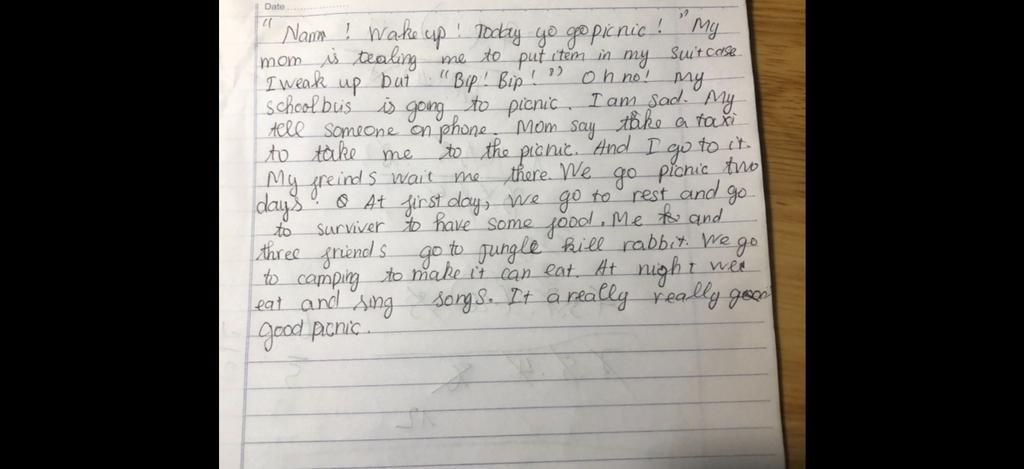 Date
" Nam ! Wake up ! Today go go picnic ! " My
mom is tealing me to put item in my suitcase
I weak up but "Bip! Bip!" Oh no! My
school bus is going to picnic. I am sad. My
tell someone on phone. Mom say take a taxi
to take me to the picnic. And I go to it.
My freinds wait me there. We go picnic two
days. At first day, we go to rest and go
to surviver to have some food. Me and
three friends go to jungle kill rabbit. We go
to camping to make it can eat. At night we
eat and sing songs. It a really really
good picnic.